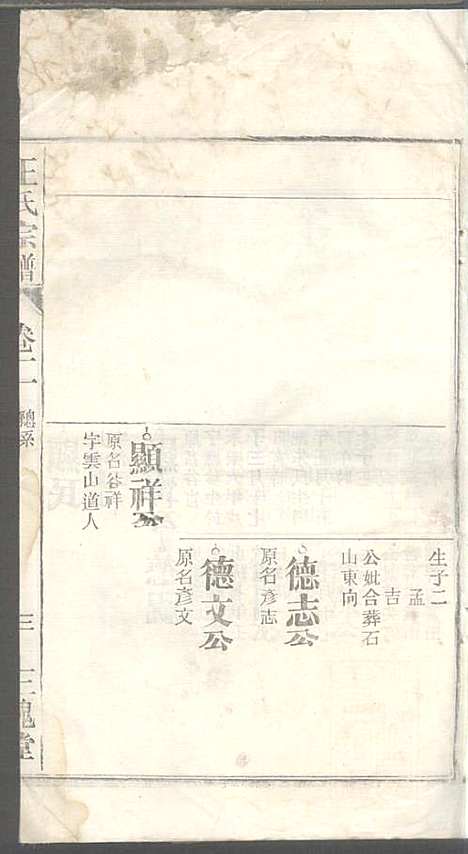 生子二
孟
吉
公妣合葬石
山東向
德志公
原名彥志
德文公
原名彥文
顯祥公
原名谷祥
字雲山道人
王氏宗譜
卷二
總系
三
三槐堂